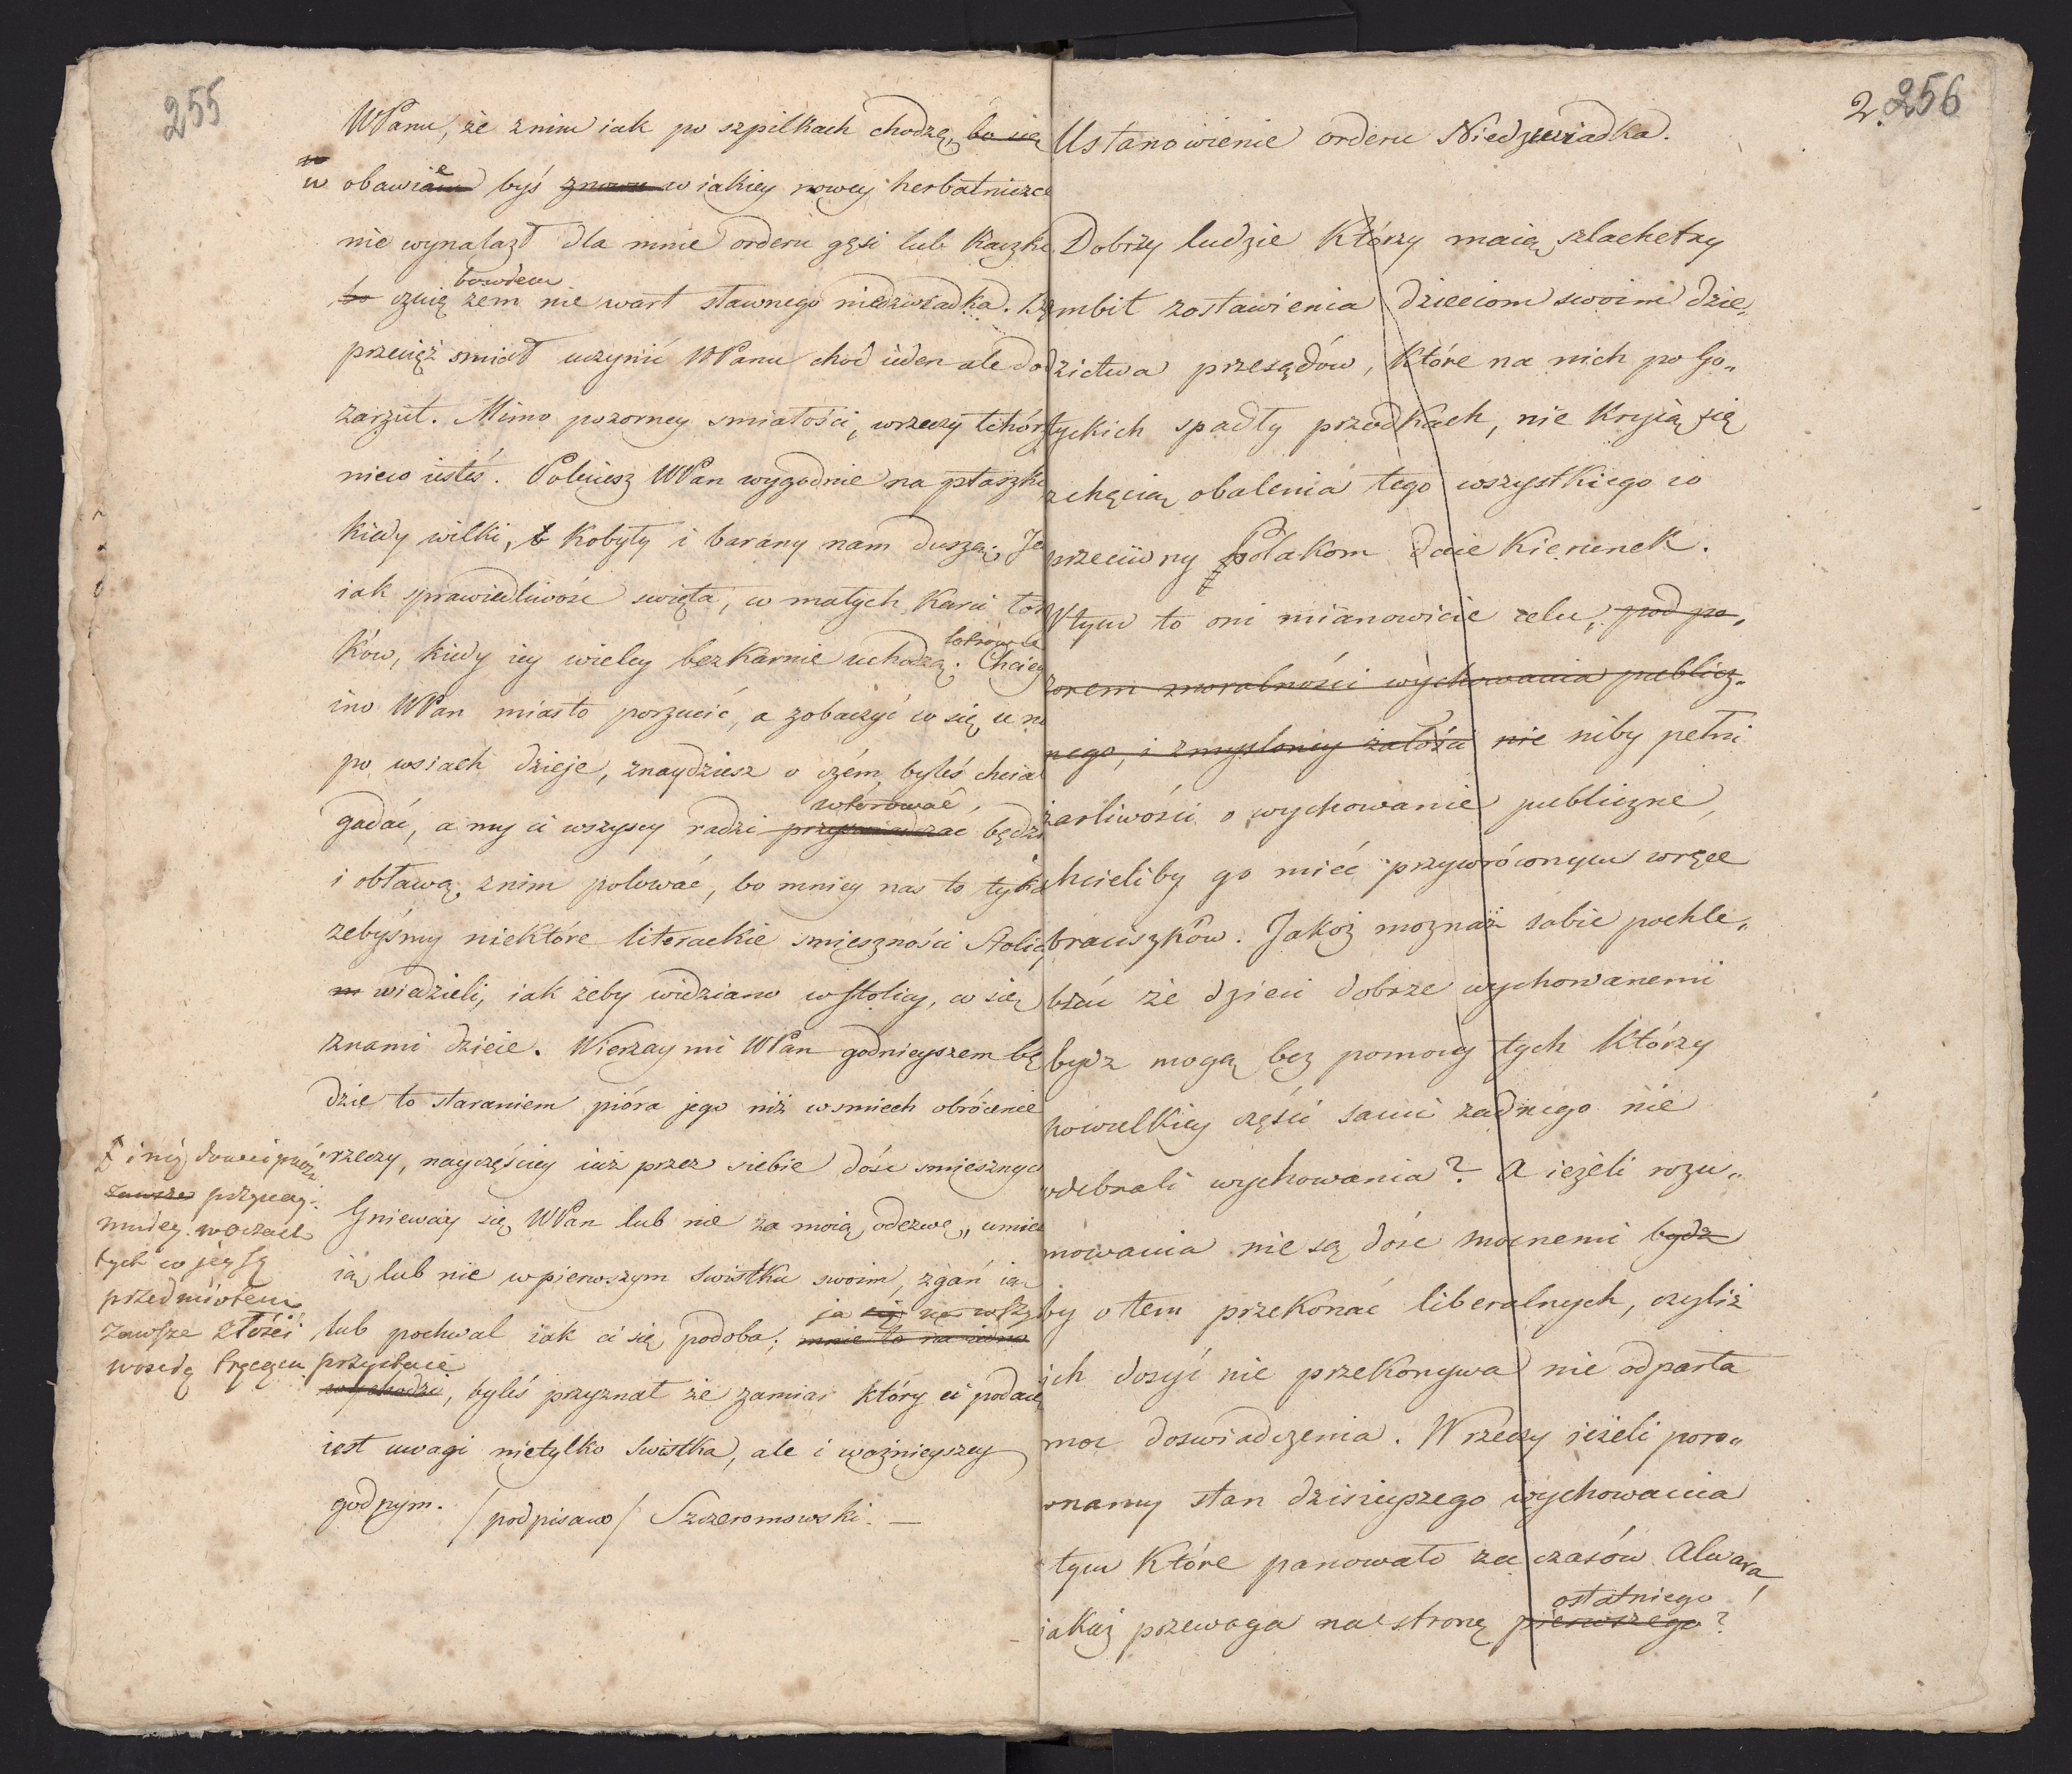 255
WPanu, że znim iak po szpilkach chodzę, bo się
w obawiae byś znowu w iakiey nowey herbatniczce
nie wynalazł dla mnie orderu gęsi lub Kaczki
bowiem
bo czuię żem nie wart sławnego niedzwiadka.
przecięż smiał uczynić WPanu choć ieden ale do
zarzut. Mimo pozorney smiałości, wrzeczy tchórz
nieco iesteś. Poluiesz WPan wygodnie na ptaszki
kiedy wilki, Kobyły i barany nam duszą; Je
iak sprawiedliwość swięta, w małych Karci łot
łotrów
ków, kiedy iey wielcy bezKarnie uchodzą. Chciey
ino WPan miasto porzucić, a zobaczyć co się u na
po wsiach dzieje, znaydziesz o czém byleś chciał
wtórować,
gadać, a my ci wszyscy radzi przyświadczać będzi
i obławą znim polować, bo mniey nas to tyka
żebyśmy niektóre literackie smieszności Stolicy
wiedzieli, iak żeby widziano wstolicy, co się
znami dzieie. Wierzay mi WPan godnieyszem bę
dzie to staraniem pióra jego niż wsmiech obrócenie
rzeczy, nayczęściey iuż przez siebie dość smiesznych
i niż
zawsze przyczy
w oczach
tych co jey są
przedmiotem
zawsze złości
Gnieway się WPan lub nie za moią odezwę, umieś
ią lub nie wpierwszym swistku swoim, zgań ią
ja na wszy
lub pochwal iak ci się podoba; mnie to na iedno
przystaię
wychodzi, byleś przyznał że zamiar który ci podaię
iest uwagi nietylko Swistka, ale i ważnieyszey
godnym. /podpisano/ Szczeromowski. —
2. 256
Ustanowienie orderu Niedzwiadka.
Dobrzy ludzie Którzy maią szlachetny
ambit zostawienia dzieciom swoim dzie„
dzictwa przesądów, Które na nich po Go„
tyckich spadły przodkach, nie Kryią się
zchęcią obalenia tego wszystkiego co
przeciwny Polakom daie Kierunek.
Wtym to oni mianowicie celu, pod po„
zorem moralności wychowania publicz„
nego, i zmysloney żałości nie niby pełni
żarliwości o wychowanie publiczne,
chcieliby go mieć przywróconym wręce
braciszków. Jakoż możnaż sobie pochle„
bzać że dzieci dobrze wychowanemi
bydz mogą bez pomocy tych Którzy
powielkiey części sami żadnego nie
odebrali wychowania? A ieżeli rozu„
mowania nie są dość mocnemi bydz
by otem przekonać liberalnych, czyliż
ich dosyć nie przekonywa nie odparta
moc doswiadczenia. W rzeczy ieżeli poro„
wnamy stan dzisieyszego wychowania
z tym Które panowało za czasów Alwara,
ostatniego
iakaż przewaga na stronę pierwszego?